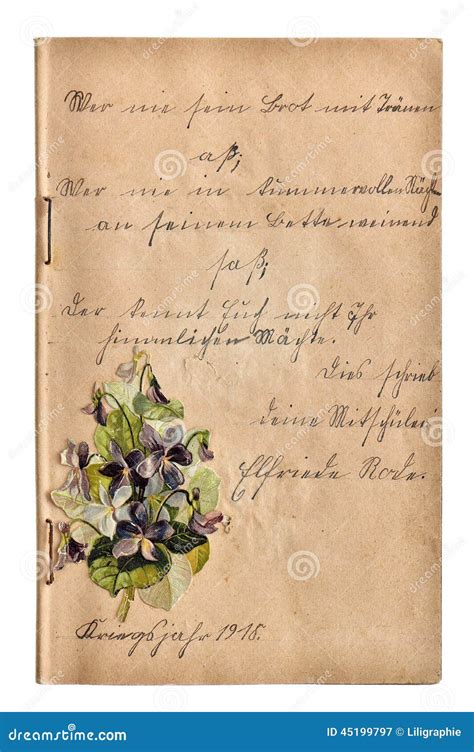 Wer nie sein Brot mit Tränen
aß;
Wer nie in kummervollen Nächt
an seinem Bette weinend
saß;
Der kennt Euch nicht Ihr
himmlischen Mächte.
Dies schrieb
deine Mitschüleri
Elfriede Rode.
Kriegsjahr 1918.
dreamstime
ID 45199797 © Liligraphie